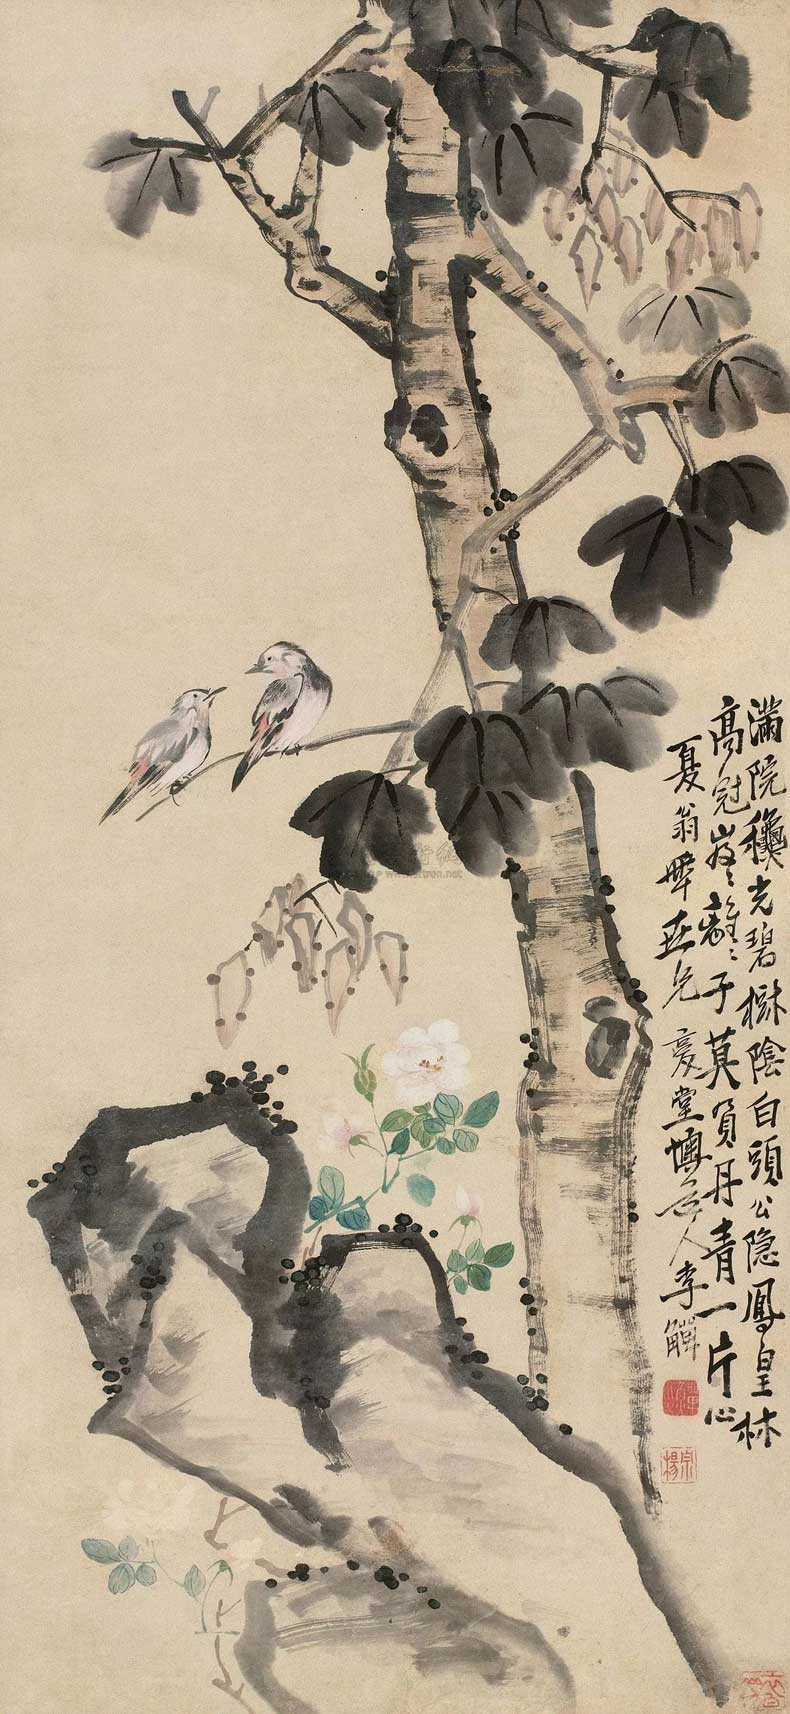 滿院穠光碧樹陰白頭公隐鳳皇林
高冠岌〻離〻子莫負丹青一片心
夏翁世兄 复堂懊道人李觶
宗楊